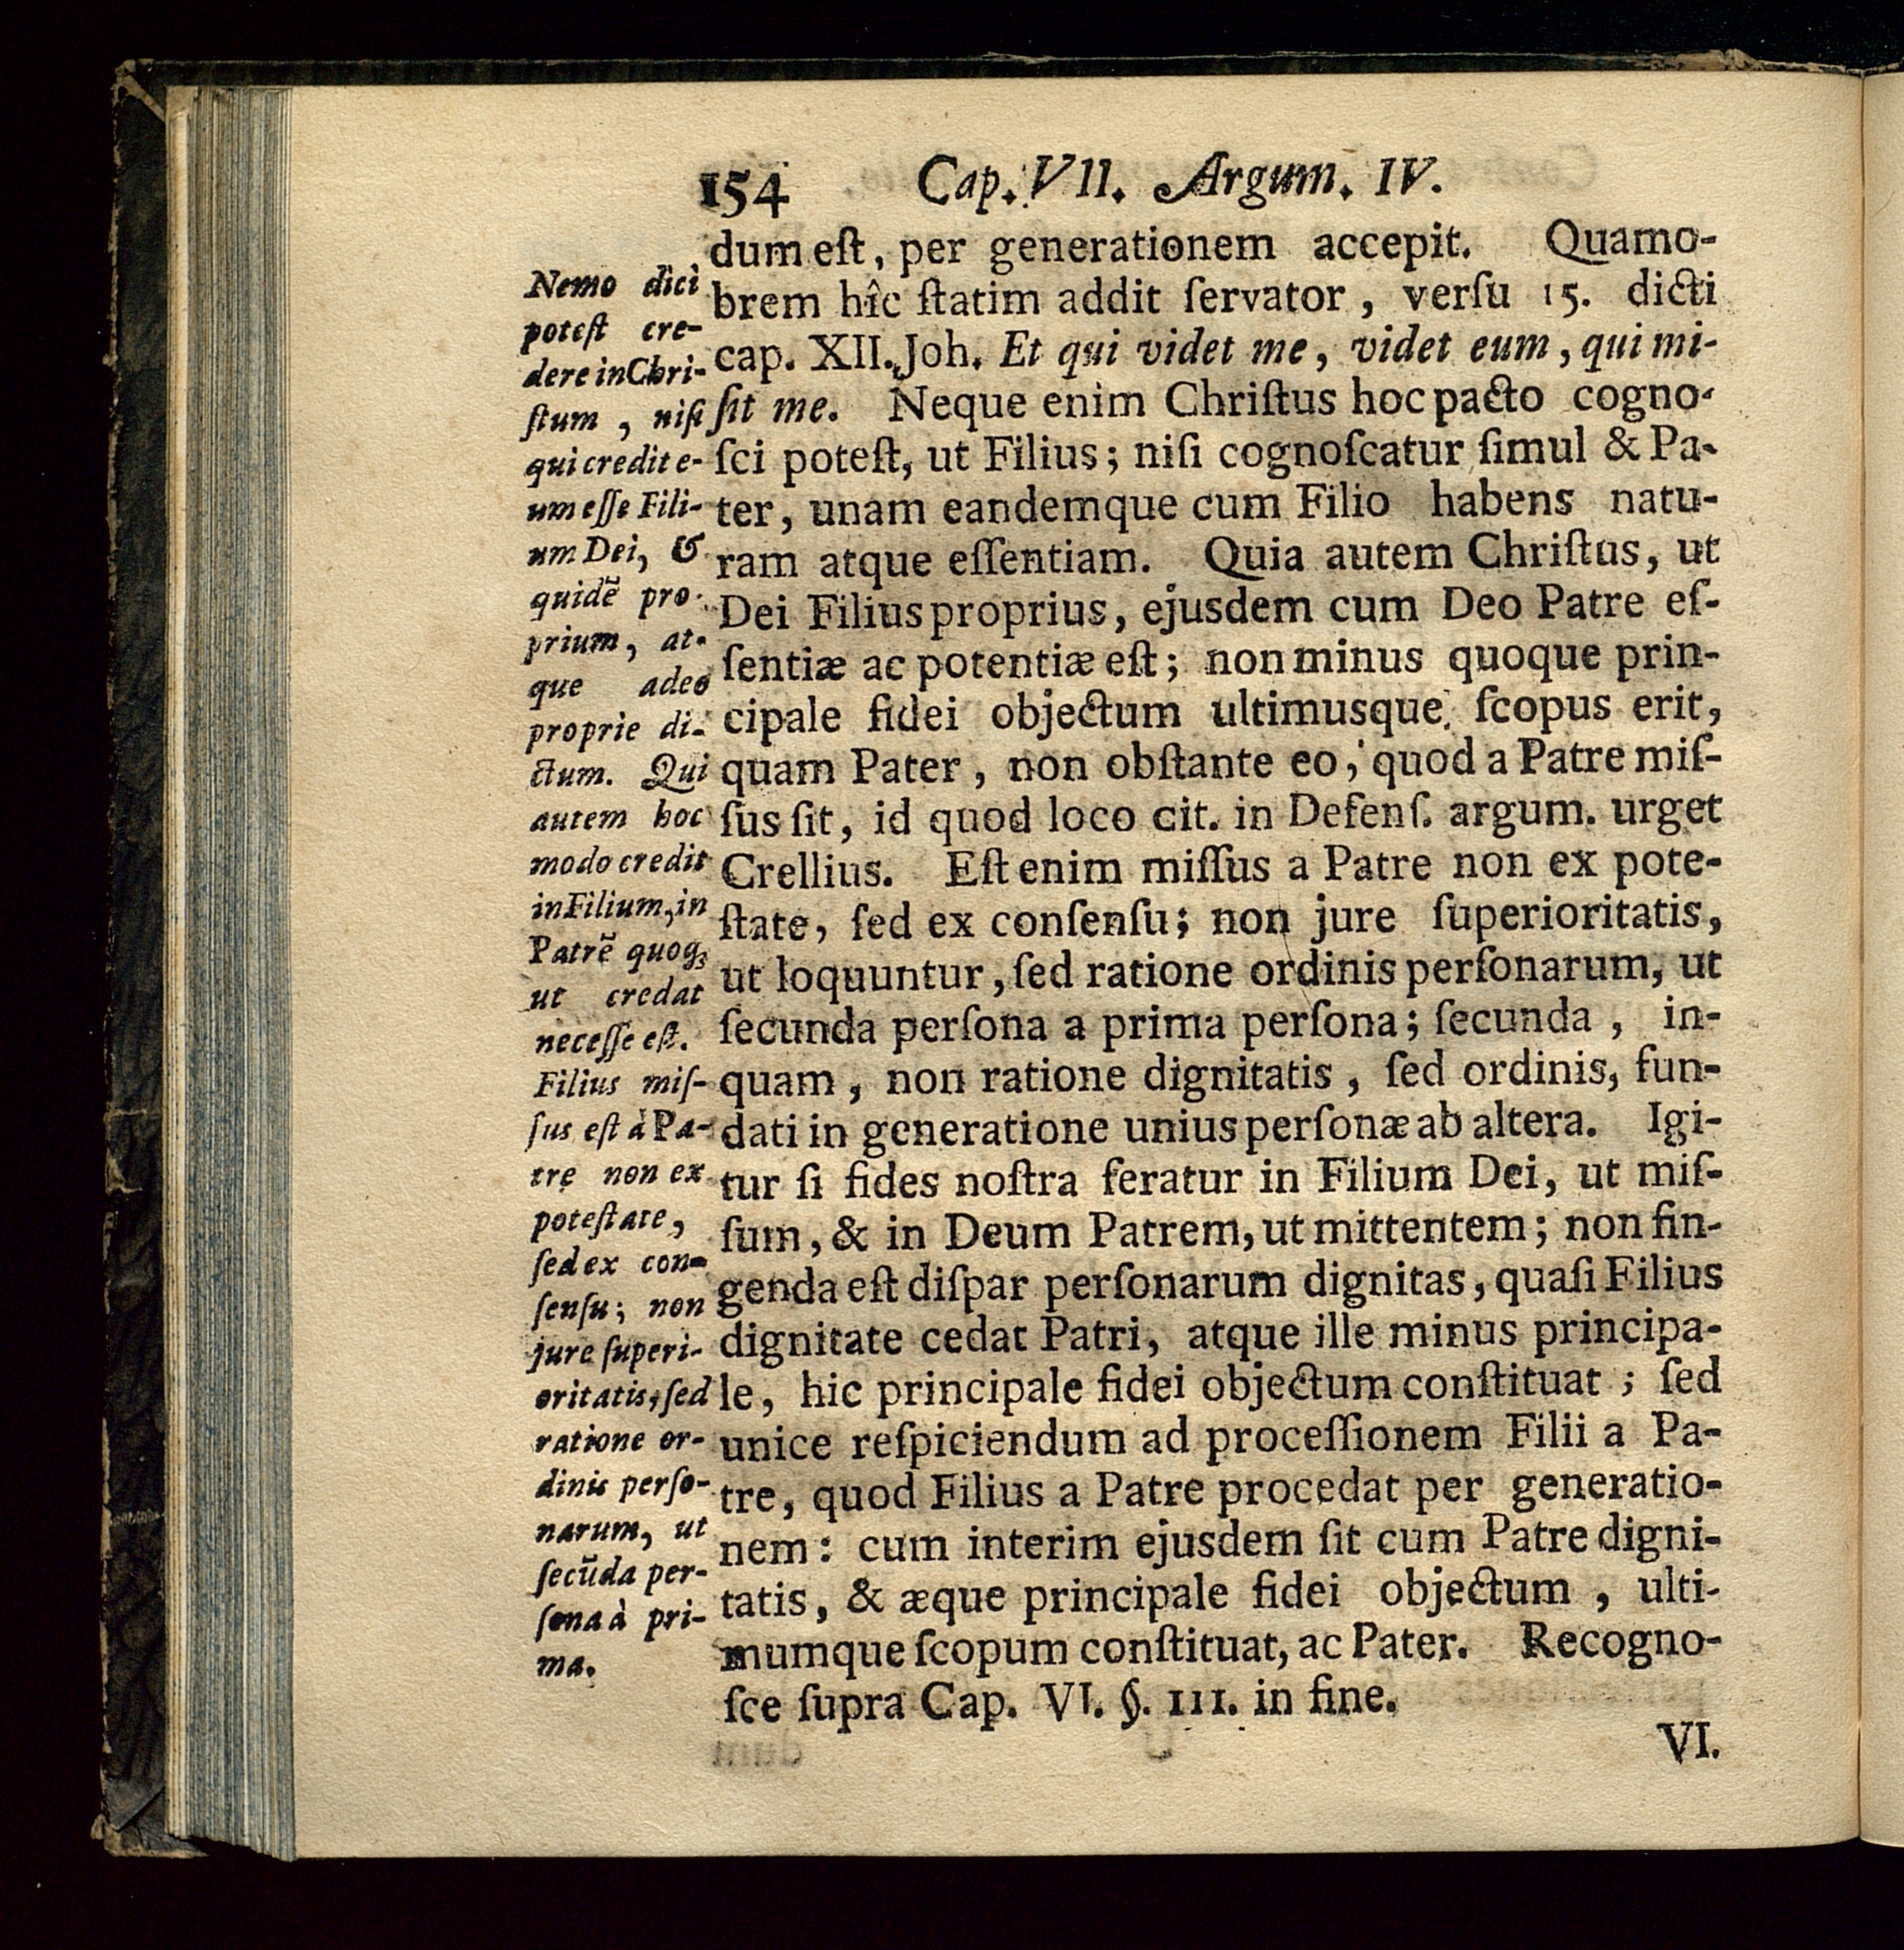 154 Cap. VII. Argum. IV.
dum eſt, per generationem accepit. Quamo-
brem hîc ſtatim addit ſervator, verſu 15. dicti
cap. XII. Joh. Et qui videt me, videt eum, qui mi-
ſit me. Neque enim Chriſtus hoc pacto cogno-
ſci poteſt, ut Filius; niſi cognoſcatur ſimul & Pa-
ter, unam eandemque cum Filio habens natu-
ram atque eſſentiam. Quia autem Chriſtus, ut
Dei Filius proprius, ejusdem cum Deo Patre eſ-
ſentiæ ac potentiæ eſt; non minus quoque prin-
cipale fidei objectum ultimusque ſcopus erit,
quam Pater, non obſtante eo, quod a Patre miſ-
ſus ſit, id quod loco cit. in Defenſ. argum. urget
Crellius. Eſt enim miſſus a Patre non ex pote-
ſtate, ſed ex conſenſu; non jure ſuperioritatis,
ut loquuntur, ſed ratione ordinis perſonarum, ut
ſecunda perſona a prima perſona; ſecunda, in-
quam, non ratione dignitatis, ſed ordinis, fun-
dati in generatione unius perſonæ ab altera. Igi-
tur ſi fides noſtra feratur in Filium Dei, ut miſ-
ſum, & in Deum Patrem, ut mittentem; non fin-
genda eſt diſpar perſonarum dignitas, quaſi Filius
dignitate cedat Patri, atque ille minus principa-
le, hic principale fidei objectum conſtituat; ſed
unice reſpiciendum ad proceſſionem Filii a Pa-
tre, quod Filius a Patre procedat per generatio-
nem: cum interim ejusdem ſit cum Patre digni-
tatis, & æque principale fidei objectum, ulti-
mumque ſcopum conſtituat, ac Pater. Recogno-
ſce ſupra Cap. VI. §. III. in fine.
VI.
Nemo dici
poteſt cre-
dere in Chri-
ſtum, niſi
qui credit e-
um eſſe Fili-
um Dei, &
quidē pro-
prium, at-
que adeo
proprie di-
ctum. Qui
autem hoc
modo credit
in Filium, in
Patrē quoqꝫ
ut credat
neceſſe eſt.
Filius miſ-
ſus eſt à Pa-
tre non ex
poteſtate,
ſed ex con-
ſenſu; non
jure ſuperi-
oritatis, ſed
ratione or-
dinis perſo-
narum, ut
ſecūda per-
ſona à pri-
ma.